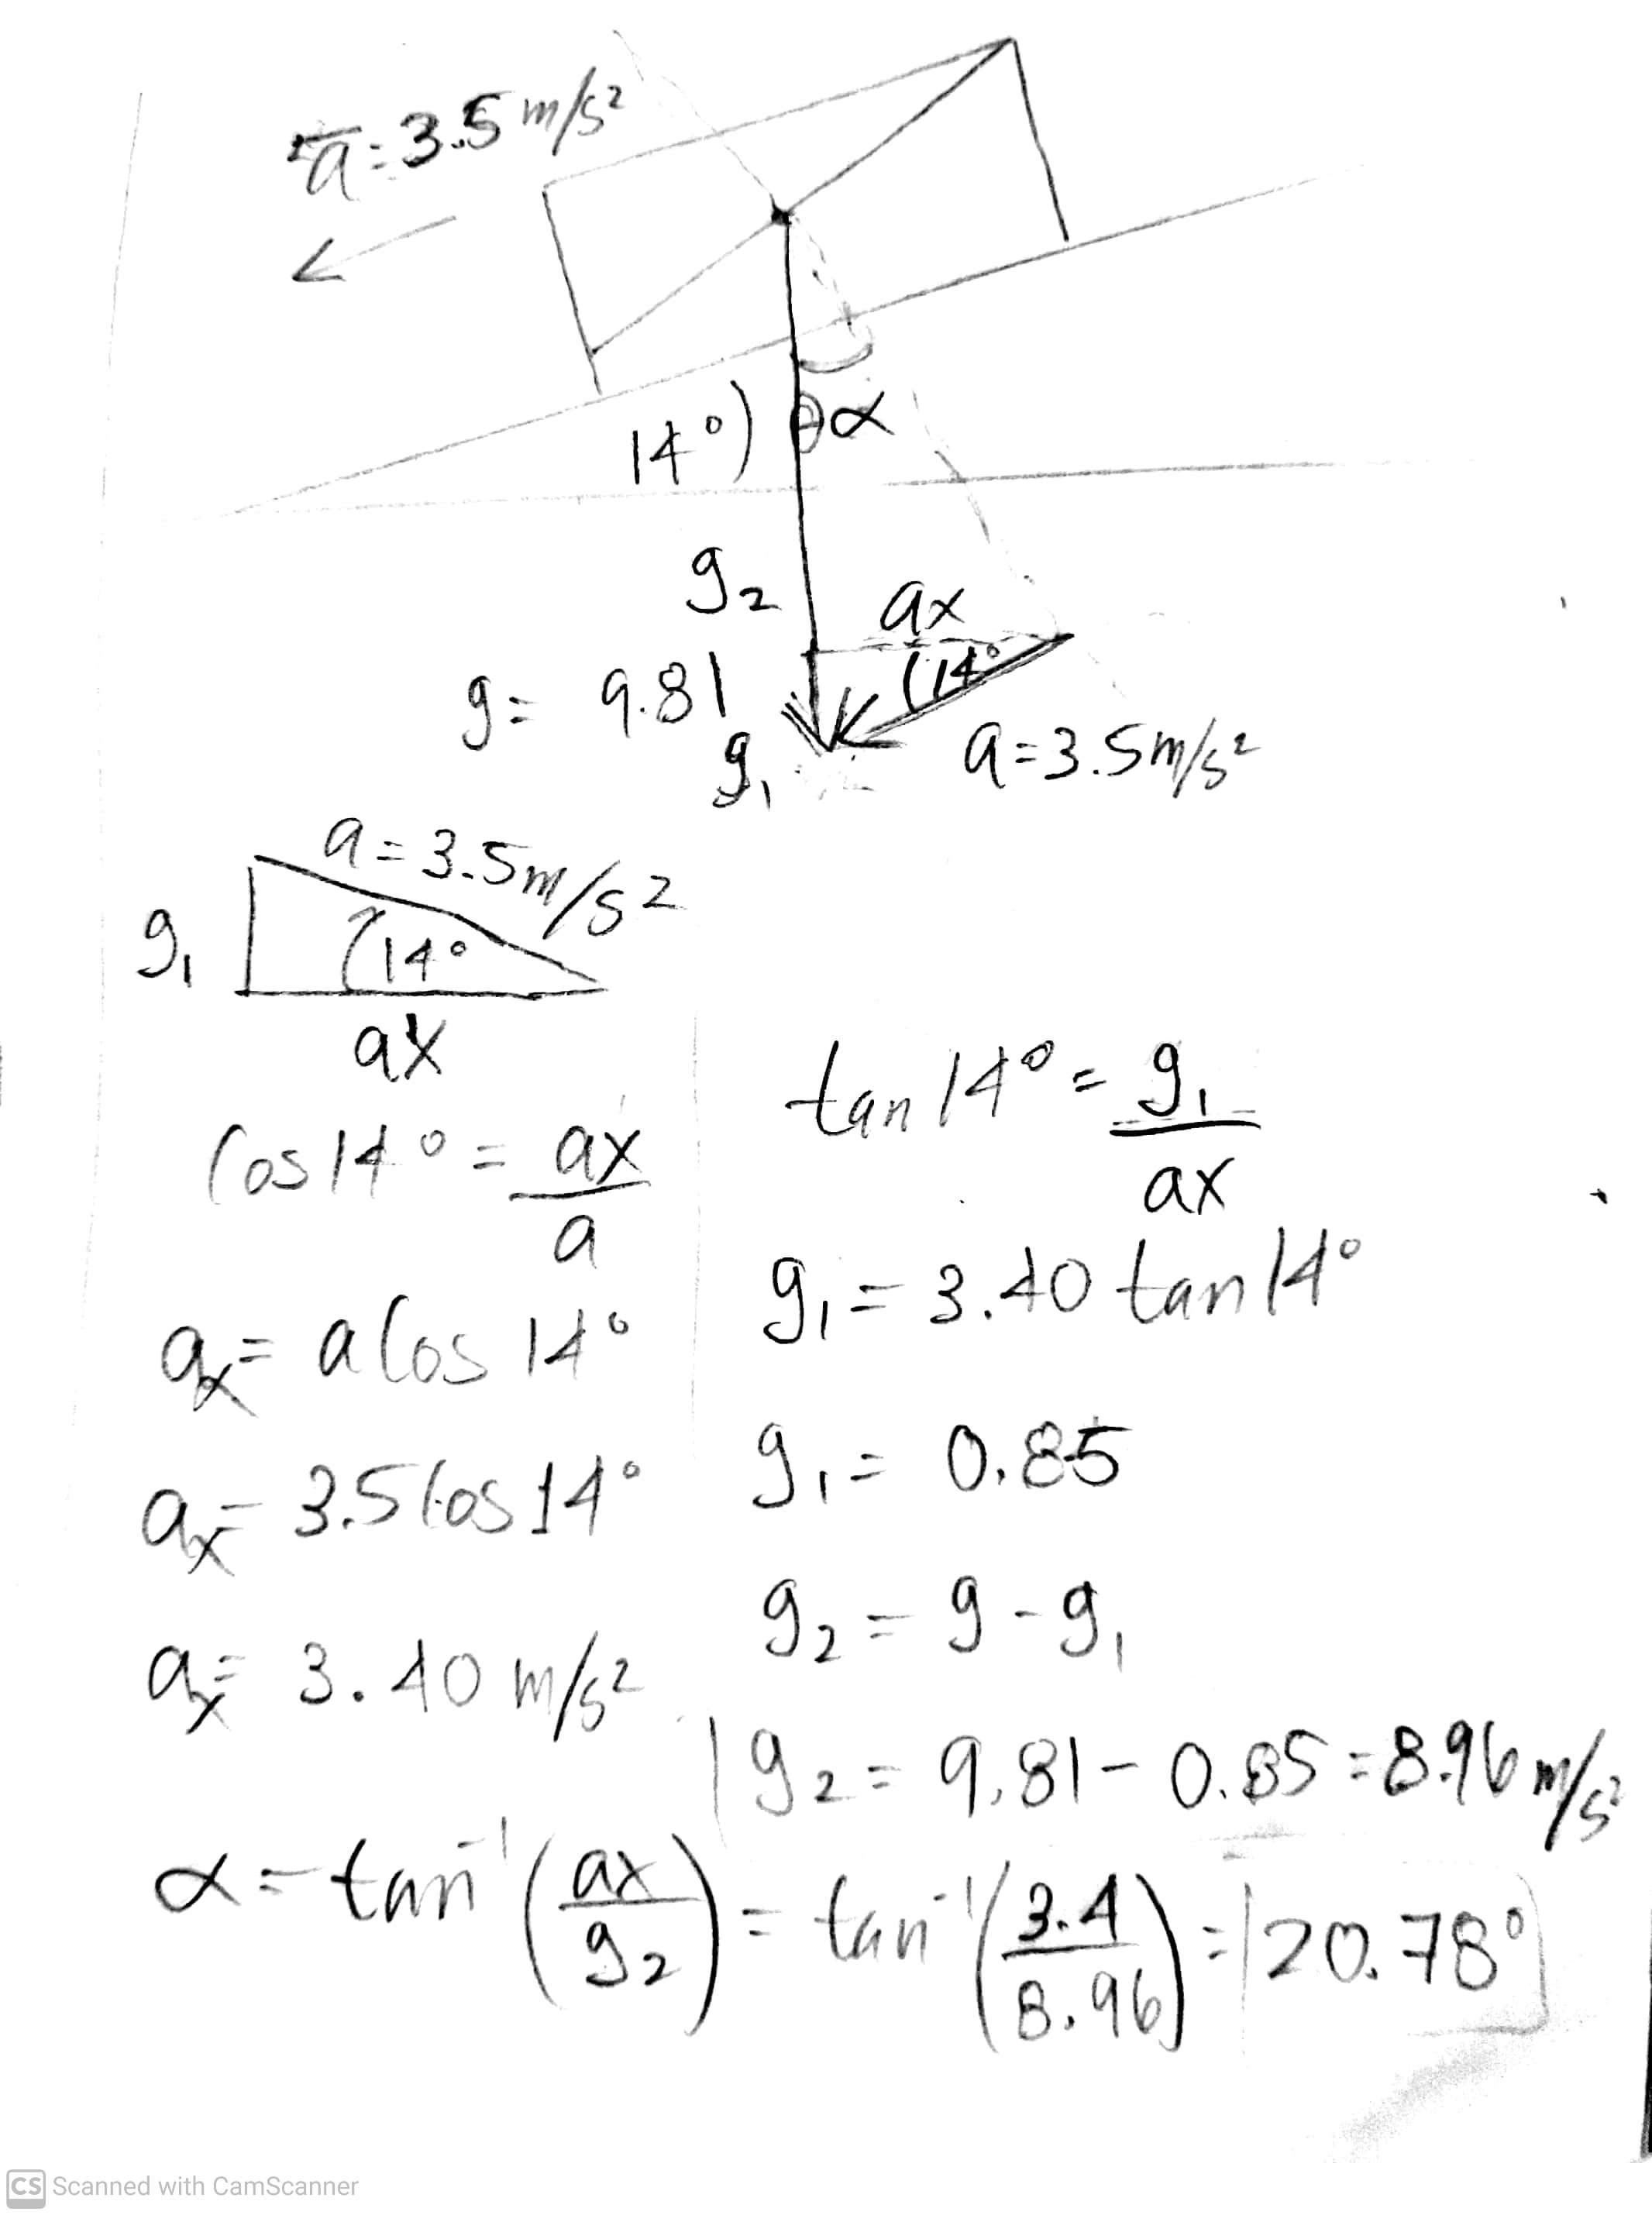 a = 3.5 m/s²
14° ) α
g₂
ax
(14°
g = 9.81
g₁
a = 3.5 m/s²
a = 3.5 m/s²
g₁
(14°
ax
Cos 14° = ax/a
ax = a Cos 14°
ax = 3.5 Cos 14°
ax = 3.40 m/s²
tan 14° = g₁/ax
g₁ = 3.40 tan 14°
g₁ = 0.85
g₂ = g - g₁
g₂ = 9.81 - 0.85 = 8.96 m/s²
α = tan⁻¹(ax/g₂) = tan⁻¹(3.4/8.96) = 20.78°
CS Scanned with CamScanner